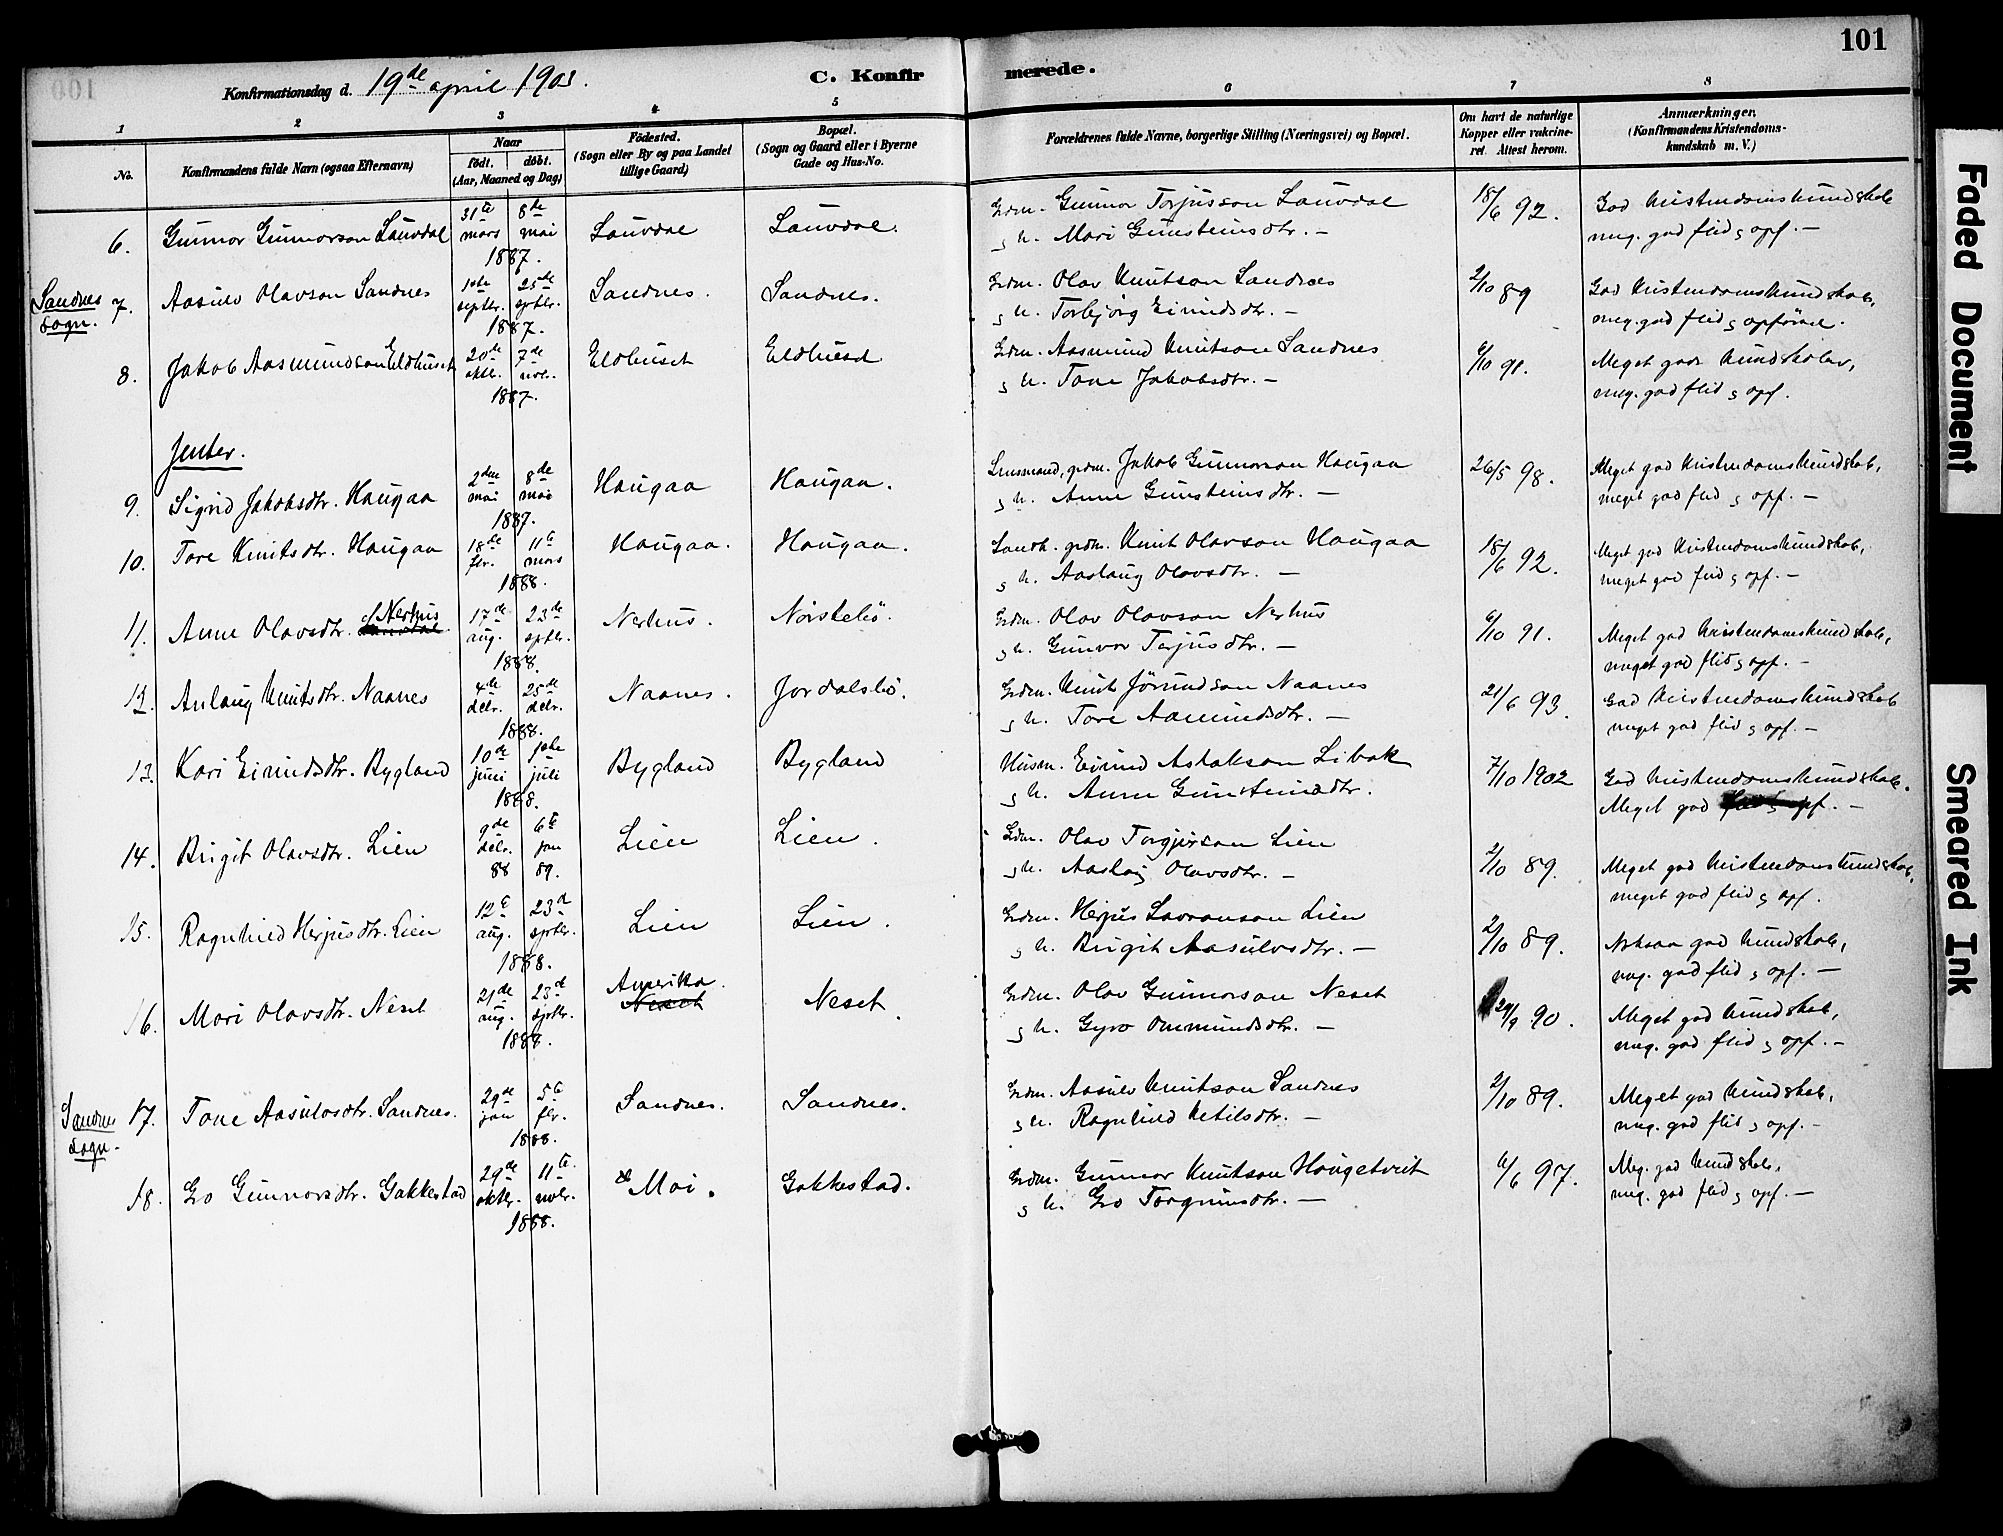 101
Konfirmationsdag d. 19de april 1903.
C. Konfirmerede.
1 2 3 4 5 6 7 8
No.
Konfirmandens fulde Navn (ogsaa Efternavn)
Naar
födt. döbt.
(Aar, Maaned og Dag)
Födested.
(Sogn eller By og paa Landet
tillige Gaard)
Bopæl.
(Sogn og Gaard eller i Byerne
Gade og Hus-No.
Forældrenes fulde Navne, borgerlige Stilling (Næringsvei) og Bopæl.
Om havt de naturlige
Kopper eller vakcine-
ret. Attest herom.
Anmærkninger.
(Konfirmandens Kristendoms-
kundskab m. V.)
6. Gunnar Gunnarson Lauvdal 31te mars 8de mai 1887. Lauvdal Lauvdal. Grdm. Gunnar Torjusson Lauvdal 18/6 92. God kristendomskundskab
og h. Mari Gunsteinsdtr. — meg. god flid og opf. —
Sandnes
sogn.
7. Aasulv Olavson Sandnes 1ste septbr. 25de septbr. 1887. Sandnes. Sandnes. Grdm. Olav Knutson Sandnes 2/10 89 God kristendomskundskab,
og h. Torbjörg Eivindsdtr. — meg. god flid og opförsel.
8. Jakob Aasmundson Eldhuset 20de oktbr. 7de novbr. 1887. Eldhuset Eldhuset Grdm. Aasmund Knutson Sandnes 6/10 91. Meget gode kundskaber,
og h. Tone Jakobsdtr. — meg. god flid og opf.
Jenter.
9. Sigrid Jakobsdtr. Haugaa 2den mai 8de mai 1887. Haugaa Haugaa. Lensmand, grdm. Jakob Gunnarson Haugaa 26/5 98. Meget god kristendomskundskab,
og h. Anne Gunsteinsdtr. — meget god flid og opf. —
10. Tore Knutsdtr. Haugaa 18de fbr. 11te mars 1888. Haugaa. Haugaa. Landh. grdm. Knut Olavson Haugaa 18/6 92. Meget god kristendomskundskab,
og h. Aaslaug Olavsdtr. — meget god flid og opf. —
11. Anne Olavsdtr. Nerhus 17de aug. 23de septbr. 1888. Nerhus. Grdm. Olav Olavson Nerhus 6/10 91. Meget god kristendomskundskab,
og h. Gunvor Terjusdtr. — meget god flid og opf. —
12. Aslaug Knutsdtr. Naanes 4de decbr. 25de decbr. 1888. Naanes. Jordalsbö. Grdm. Knut Jörundson Naanes 21/6 93. God kristendomskundskab
og h. Tore Aamundsdtr. — meget god flid og opf. —
13. Kari Eivindsdtr. Bygland 10de juni 1ste juli 1888. Bygland Bygland Husm. Eivind Aslakson Libak 7/10 1902 God kristendomskundskab.
og h. Anne Gunsteinsdtr. Meget god flid og opf. —
14. Birgit Olavsdtr. Lien 9de decbr. 88 6te jan 89. Lien Lien. Grdm. Olav Torgjusson Lien 2/10 89. Meget god kristendomskundskab,
og h. Aaslaug Olavsdtr. — meget god flid og opf.
15. Ragnhild Herjusdtr. Lien 12te aug. 23de septbr. 1888. Lien Lien. Grdm. Herjus Lavranson Lien 2/10 89. Nokaa god kundskab,
og h. Birgit Aasulvsdtr. — meg. god flid og opf. —
16. Mari Olavsdtr. Neset 21de aug. 23de septbr. 1888. Amerika. Neset Neset. Grdm. Olav Gunnarson Neset 24/9 90. Meget god kundskab,
og h. Gyro Ommundsdtr. — meg. god flid og opf. —
Sandnes
sogn.
17. Tone Aasulvsdtr. Sandnes. 29de jan 5te fbr. 1888. Sandnes. Sandnes. Grdm. Aasulv Knutson Sandnes 2/10 89. Meget god kundskab,
og h. Ragnhild Ketilsdtr. — meg. god flid og opf. —
18. Gro Gunnarsdtr. Gakkestad 29de oktbr. 11te novbr. 1888. Moi. Gakkestad. Grdm. Gunnar Knutson Haugetveit 6/6 97. Meg. god kundskab,
og h. Gro Torgrimsdtr. — meg. god flid og opf. —
Faded Document
Smeared Ink